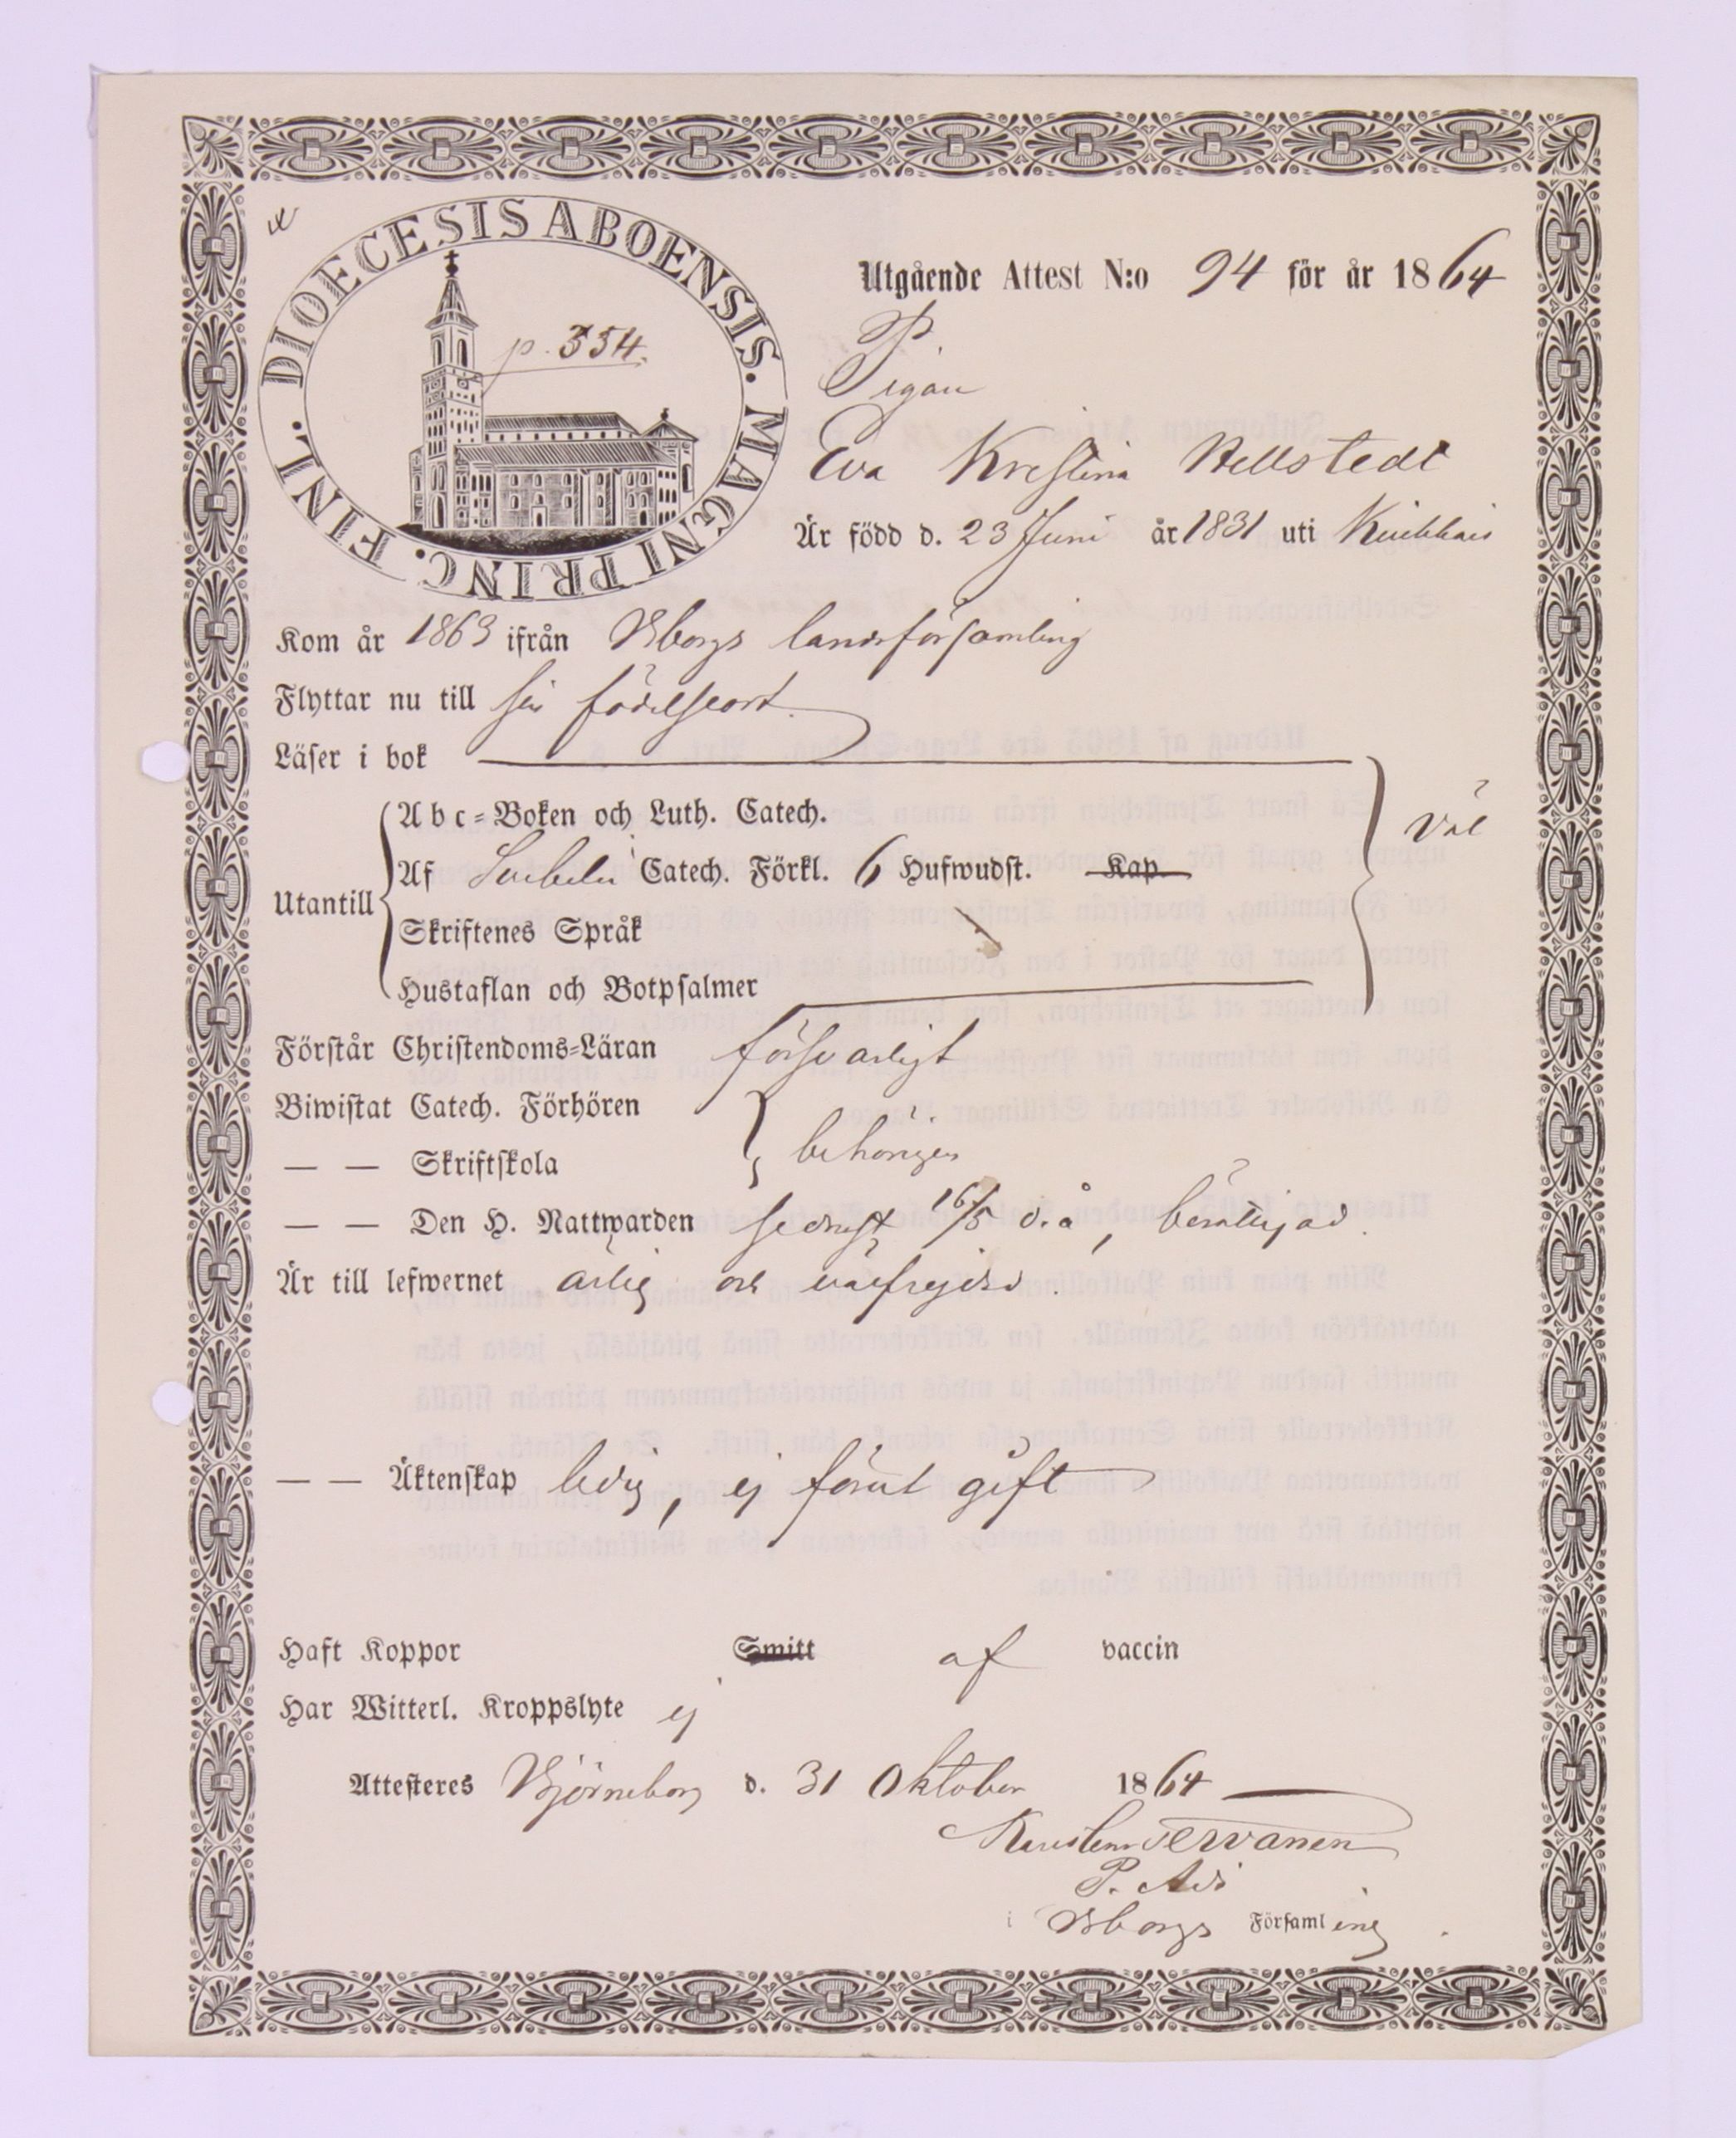 DIOECESIS ABOENSIS. MAGNI PRINC. FINL.
p. 354.
Utgående Attest N:o 94 för år 1864
P.
Pigan
Eva Kristina Hellstedt
Är född d. 23 Juni år 1831 uti
Kom år 1863 ifrån Bborgs landsförsamling
Flyttar nu till sin födelseort.
Läser i bok
Abc-Boken och Luth. Catech.
väl
Utantill
Af Svebelii Catech. Förkl. 6 Hufwudst. Kap.
Skriftenes Språk
Hustaflan och Botpsalmer
Förstår Christendoms-Läran försvarligt
Biwistat Catech. Förhören
— — Skriftskola
behörigen
— — Den H. Nattwarden sednast 16/5 d. å, berättigad.
Är till lefwernet ärlig och välfrejdad.
— — Äktenskap ledig, ej förut gift
Haft Koppor Smitt af vaccin
Har Witterl. Kroppslyte ej
Attesteres Björneborg d. 31 Oktober 1864
Tervanen
P. Adj
i Bborgs Församling